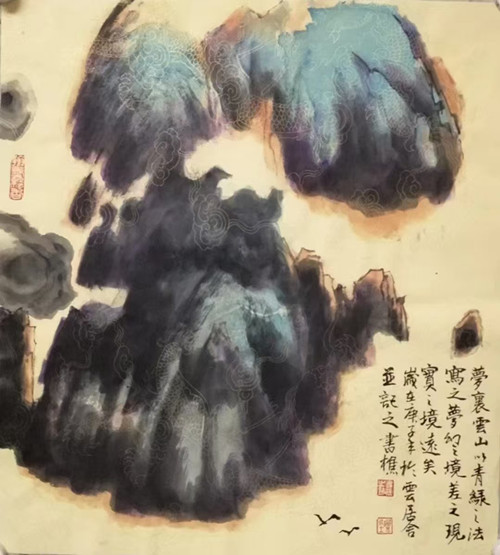 夢裏雲山以青緑之法
寫之夢幻之境差之現
實之境遠矣
歲在庚子年於雲居舍
並記之書樵